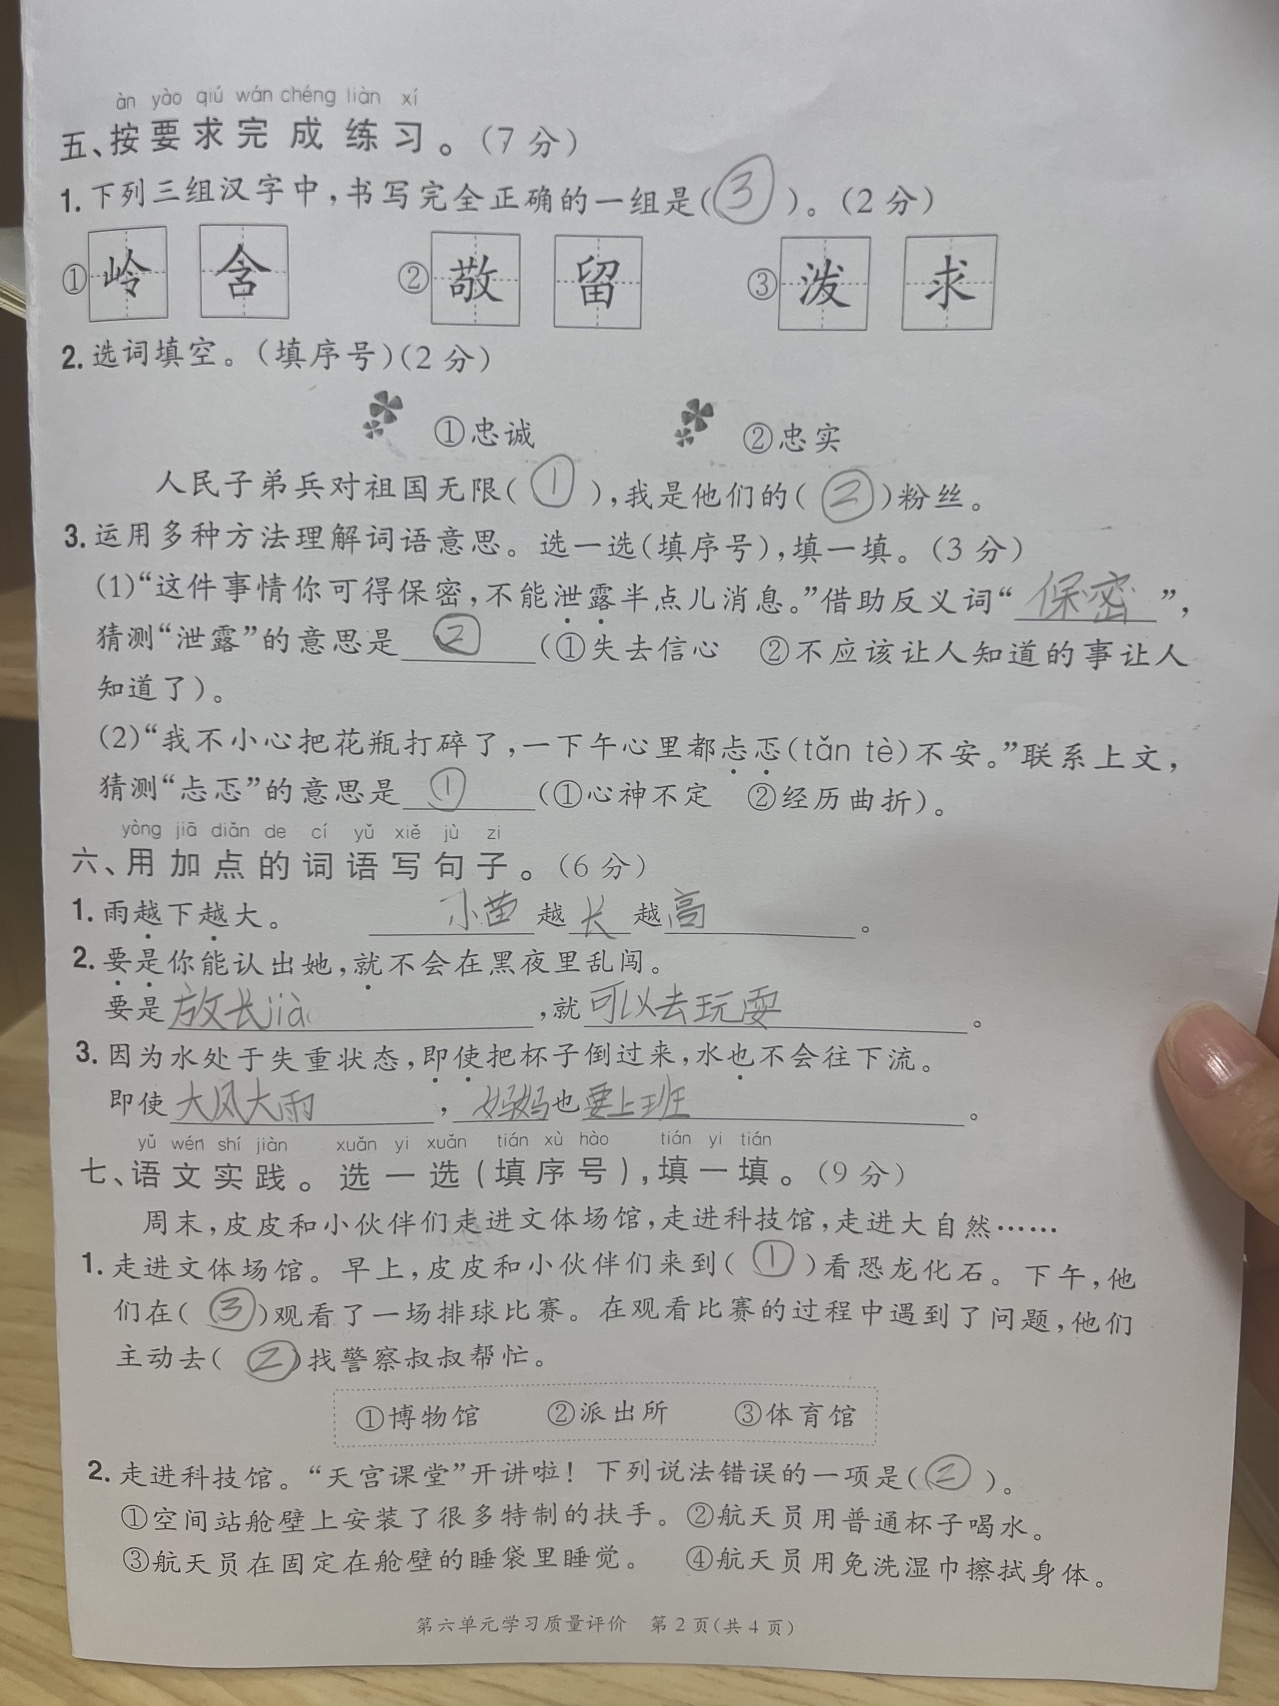 àn yào qiú wán chéng liàn xí
五、按要求完成练习。(7分)
1.下列三组汉字中，书写完全正确的一组是(③)。(2分)
①岭 含 ②敬 留 ③泼 求
2.选词填空。(填序号)(2分)
①忠诚 ②忠实
人民子弟兵对祖国无限(①)，我是他们的(②)粉丝。
3.运用多种方法理解词语意思。选一选(填序号)，填一填。(3分)
(1)“这件事情你可得保密，不能泄露半点儿消息。”借助反义词“保密”，
猜测“泄露”的意思是②(①失去信心 ②不应该让人知道的事让人
知道了)。
(2)“我不小心把花瓶打碎了，一下午心里都忐忑(tǎn tè)不安。”联系上文，
猜测“忐忑”的意思是①(①心神不定 ②经历曲折)。
yòng jiā diǎn de cí yǔ xiě jù zi
六、用加点的词语写句子。(6分)
1.雨越下越大。 小苗越长越高。
2.要是你能认出她，就不会在黑夜里乱闯。
要是放长jià，就可以去玩耍。
3.因为水处于失重状态，即使把杯子倒过来，水也不会往下流。
即使大风大雨，妈妈也要上班。
yǔ wén shí jiàn xuǎn yi xuǎn tián xù hào tián yi tián
七、语文实践。选一选(填序号)，填一填。(9分)
周末，皮皮和小伙伴们走进文体场馆，走进科技馆，走进大自然……
1.走进文体场馆。早上，皮皮和小伙伴们来到(①)看恐龙化石。下午，他
们在(③)观看了一场排球比赛。在观看比赛的过程中遇到了问题，他们
主动去(②)找警察叔叔帮忙。
①博物馆 ②派出所 ③体育馆
2.走进科技馆。“天宫课堂”开讲啦！下列说法错误的一项是(②)。
①空间站舱壁上安装了很多特制的扶手。 ②航天员用普通杯子喝水。
③航天员在固定在舱壁的睡袋里睡觉。 ④航天员用免洗湿巾擦拭身体。
第六单元学习质量评价 第2页(共4页)